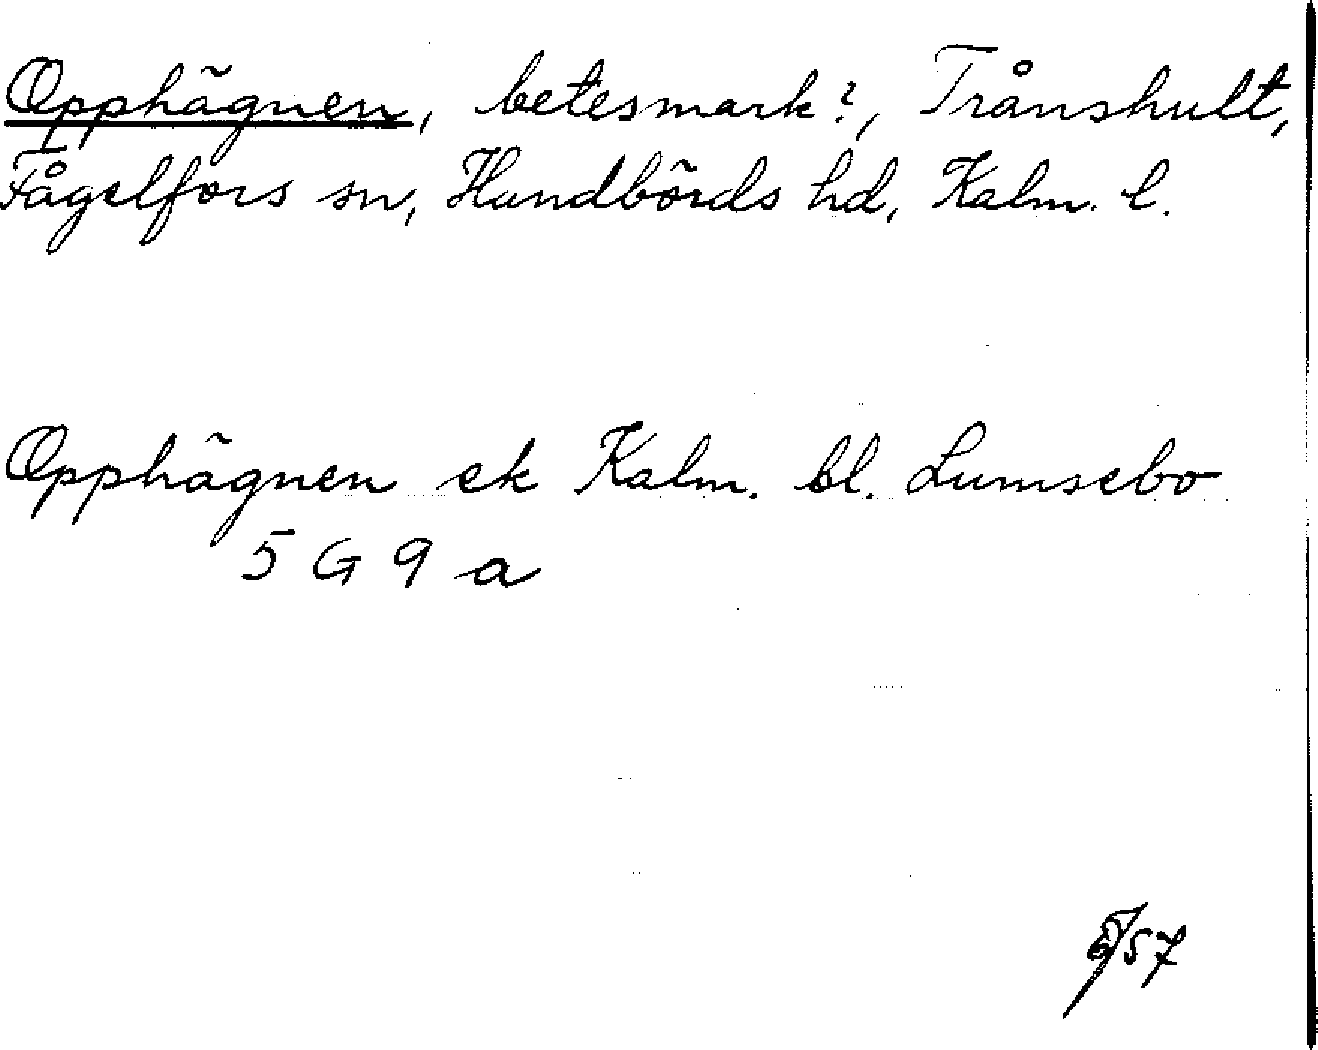 Opphägnen, betesmark?, Trånshult,
Fågelfors sn, Handbörds hd, Kalm. l.
Opphägnen ek Kalm. bl. Lumsebo
5 G 9 a